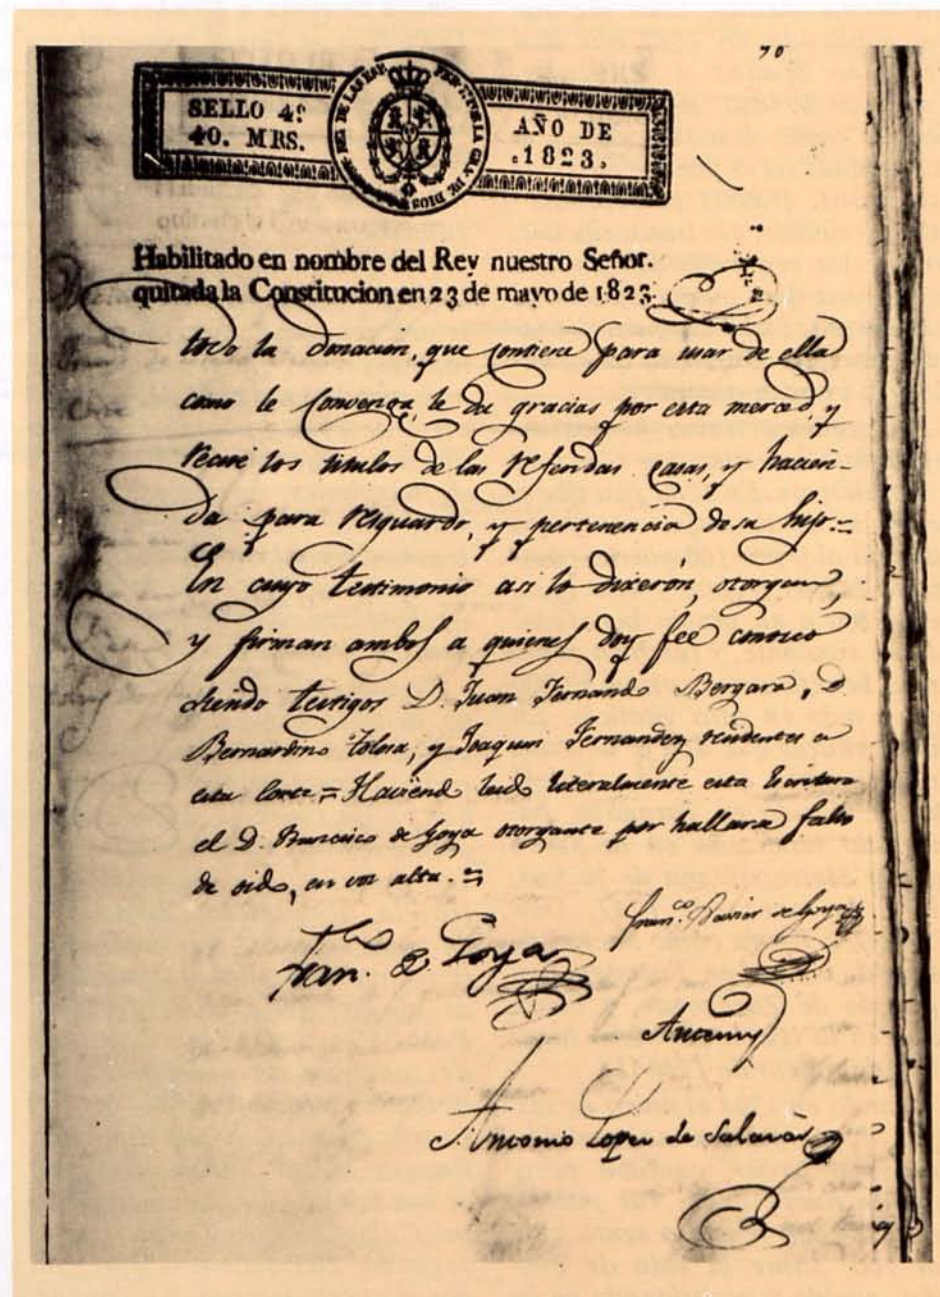 70
SELLO 4º
40. MRS.
AÑO DE
1823.
Habilitado en nombre del Rey nuestro Señor.
quitada la Constitucion en 23 de mayo de 1823
todo la donacion, que contiene para usar de ella
como le convenga, le da gracias por esta merced, y
recive los titulos de las referidas casas, y hacien-
da para resguardo, y pertenencia de su hijo.=
En cuyo testimonio asi lo dixeron, otorgan,
y firman ambos a quienes doy fee conozco
siendo testigos D. Juan Fernando Bergara, D.
Bernardino Tolosa, y Joaquin Fernandez residentes en
esta Corte = Haviend leido literalmente esta Escritura
el D. Francisco de Goya otorgante por hallarse falto
de oido, en voz alta.=
Franco. Xavier de Goya
Franco. de Goya
Antemy
Antonio Lopez de Salazar